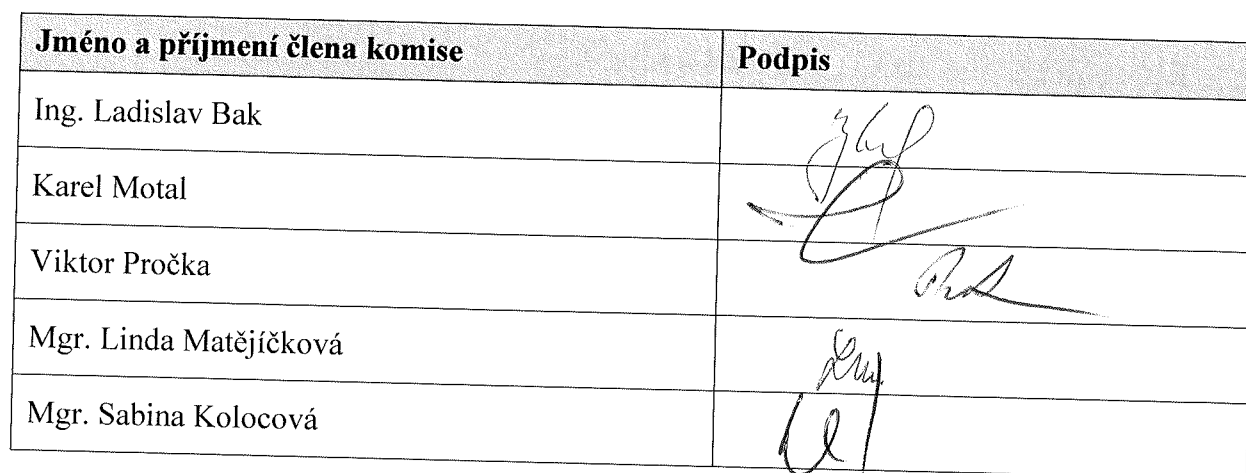 Jméno a příjmení člena komise Podpis
Ing. Ladislav Bak
Karel Motal
Viktor Pročka
Mgr. Linda Matějíčková
Mgr. Sabina Kolocová